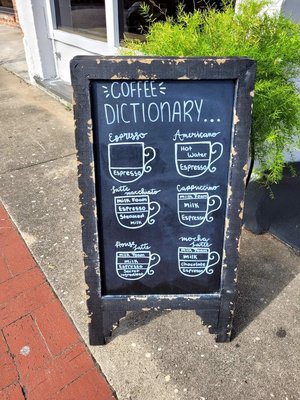 COFFEE
DICTIONARY...
Espresso
Americano
Hot
Water
Espresso
Espresso
Latte Macchiato
Cappuccino
Milk Foam
Espresso
Steamed
Milk Foam
Milk
Espresso
House Latte
Mocha Latte
Milk Foam
Milk
Espresso
Milk
Chocolate
Espresso